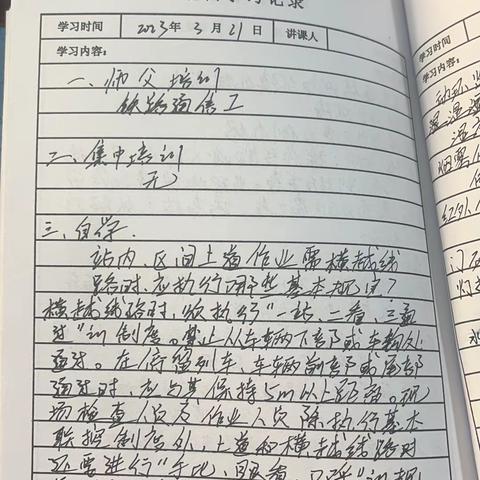 习记录
学习时间 2023年3月21日 讲课人
学习内容:
一、师父培训
铁路通信工
二、集中培训
无
三、自学
站内、区间上道作业需横越线
路时,应执行哪些基本规定?
横越线路时,须执行"一站、二看、三通
过"的制度。禁止从车辆下部或车钩处
通过。在停留列车、车辆前部或尾部
通过时,应与其保持5m以上距离。现
场检查人员及作业人员除执行基本
联控制度外,上道和横越线路时
还要进行"手比、眼看、口呼"
学习时间
学习内容:
动环
湿
烟雾
红外
门